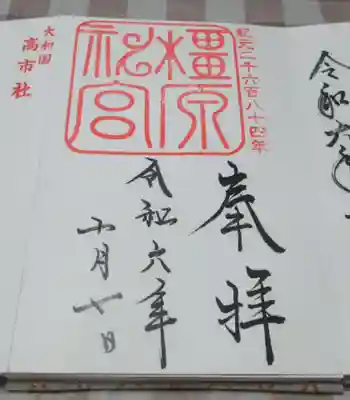 紀元二千六百八十四年
奉拝
橿原
神宮
令和六年
十月七日
大和国
高市社
令和六